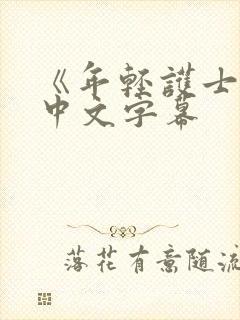 《年轻護士
中文字幕
落花有意随流